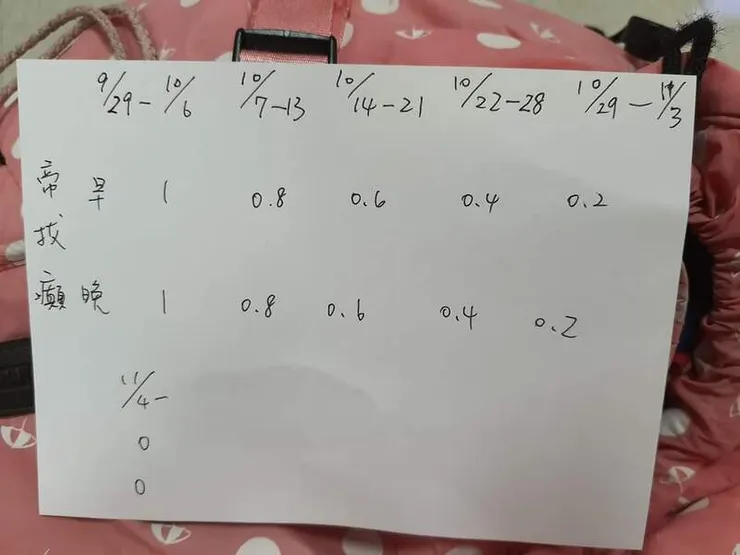 9/29-10/6 10/7-13 10/14-21 10/22-28 10/29-11/3
帝拔癲
早 1 0.8 0.6 0.4 0.2
晚 1 0.8 0.6 0.4 0.2
11/4-
0
0